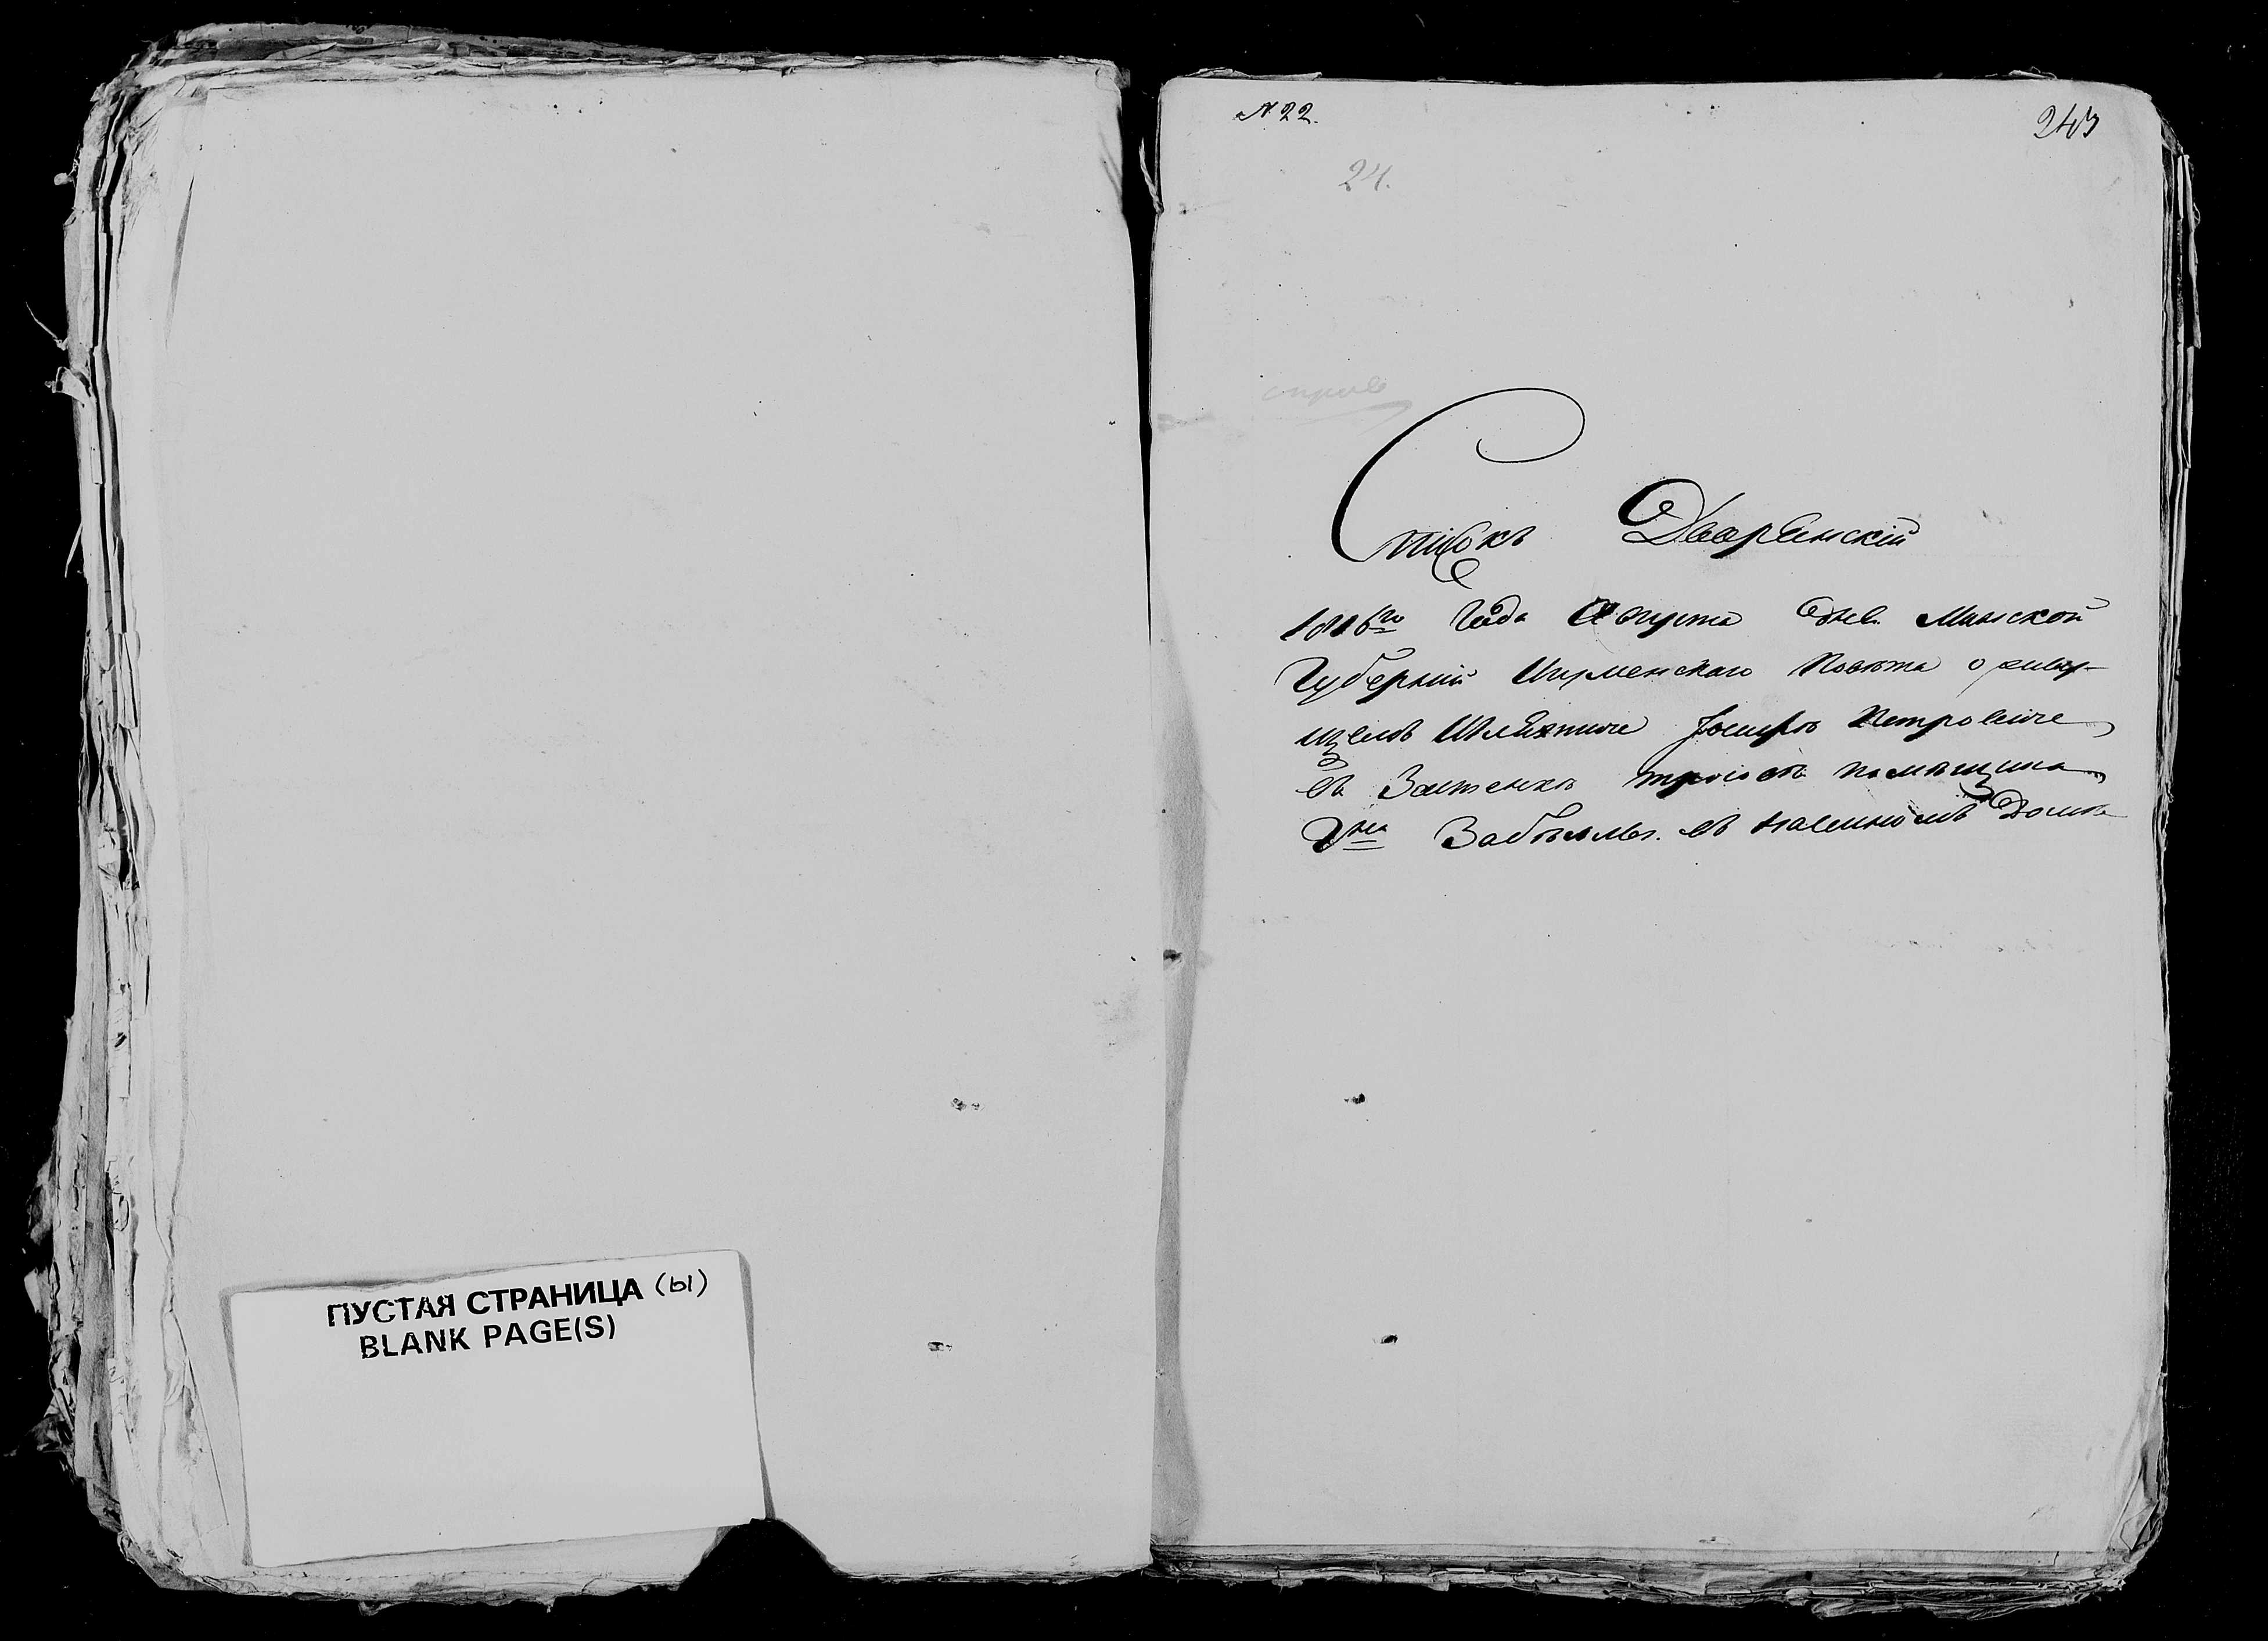 ПУСТАЯ СТРАНИЦА (Ы)
BLANK PAGE(S)
№ 22.
24.
Списокъ Дворянскій
1816го Года Августа дня Минской
Губерніи Игуменскаго Повѣта о живу-
щемъ Шляхтиче Іосифѣ Петровиче
въ Застенкѣ помѣщика
Гна въ наемномъ Доме